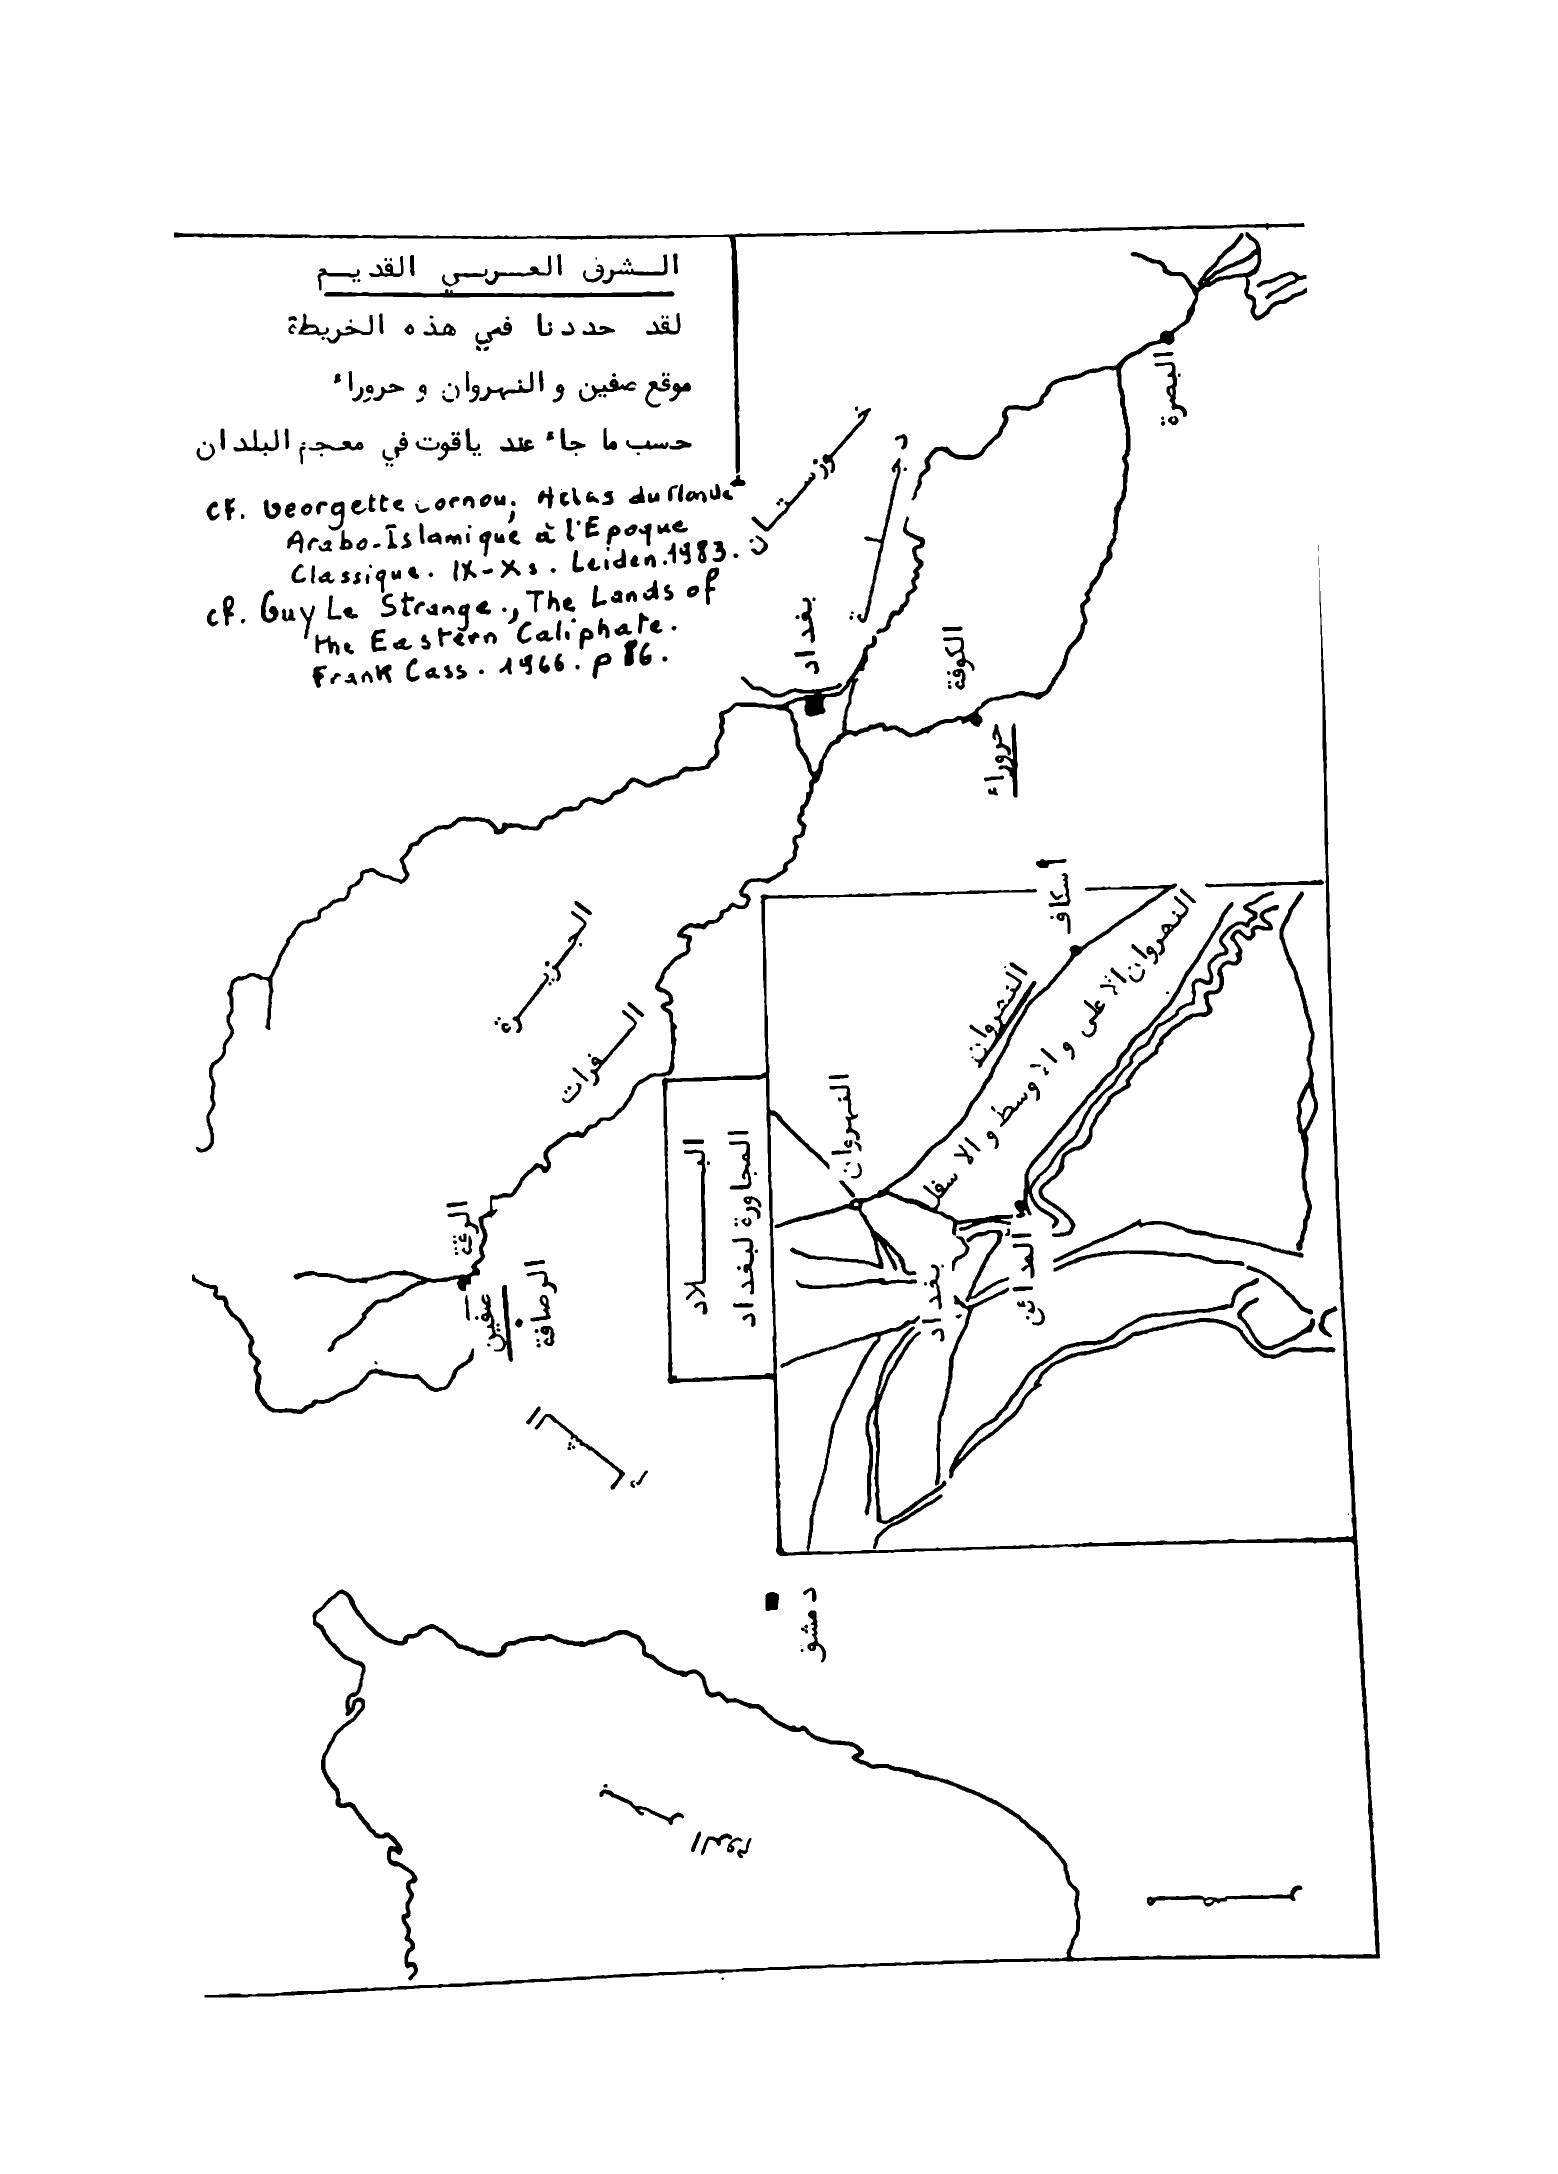 الشرق العربي القديم
لقد حددنا في هذه الخريطة
موقع صفين و النهروان و حروراء
حسب ما جاء عند ياقوت في معجم البلدان
cf. Georgette Cornou; Atlas du Monde
Arabo-Islamique à l'Epoque
Classique. IX-Xs. Leiden.1983.
cf. Guy Le Strange., The Lands of
the Eastern Caliphate.
Frank Cass. 1966. p 86.
البصرة
خوزستان
دجلة
بغداد
الكوفة
حروراء
الجزيرة
الفرات
الرقة
صفين
الرصافة
البلاد
المجاورة لبغداد
أسكاف
النهروان
النهروان الاعلى و الاوسط و الاسفل
النهروان
بغداد
المدائن
دمشق
مصر